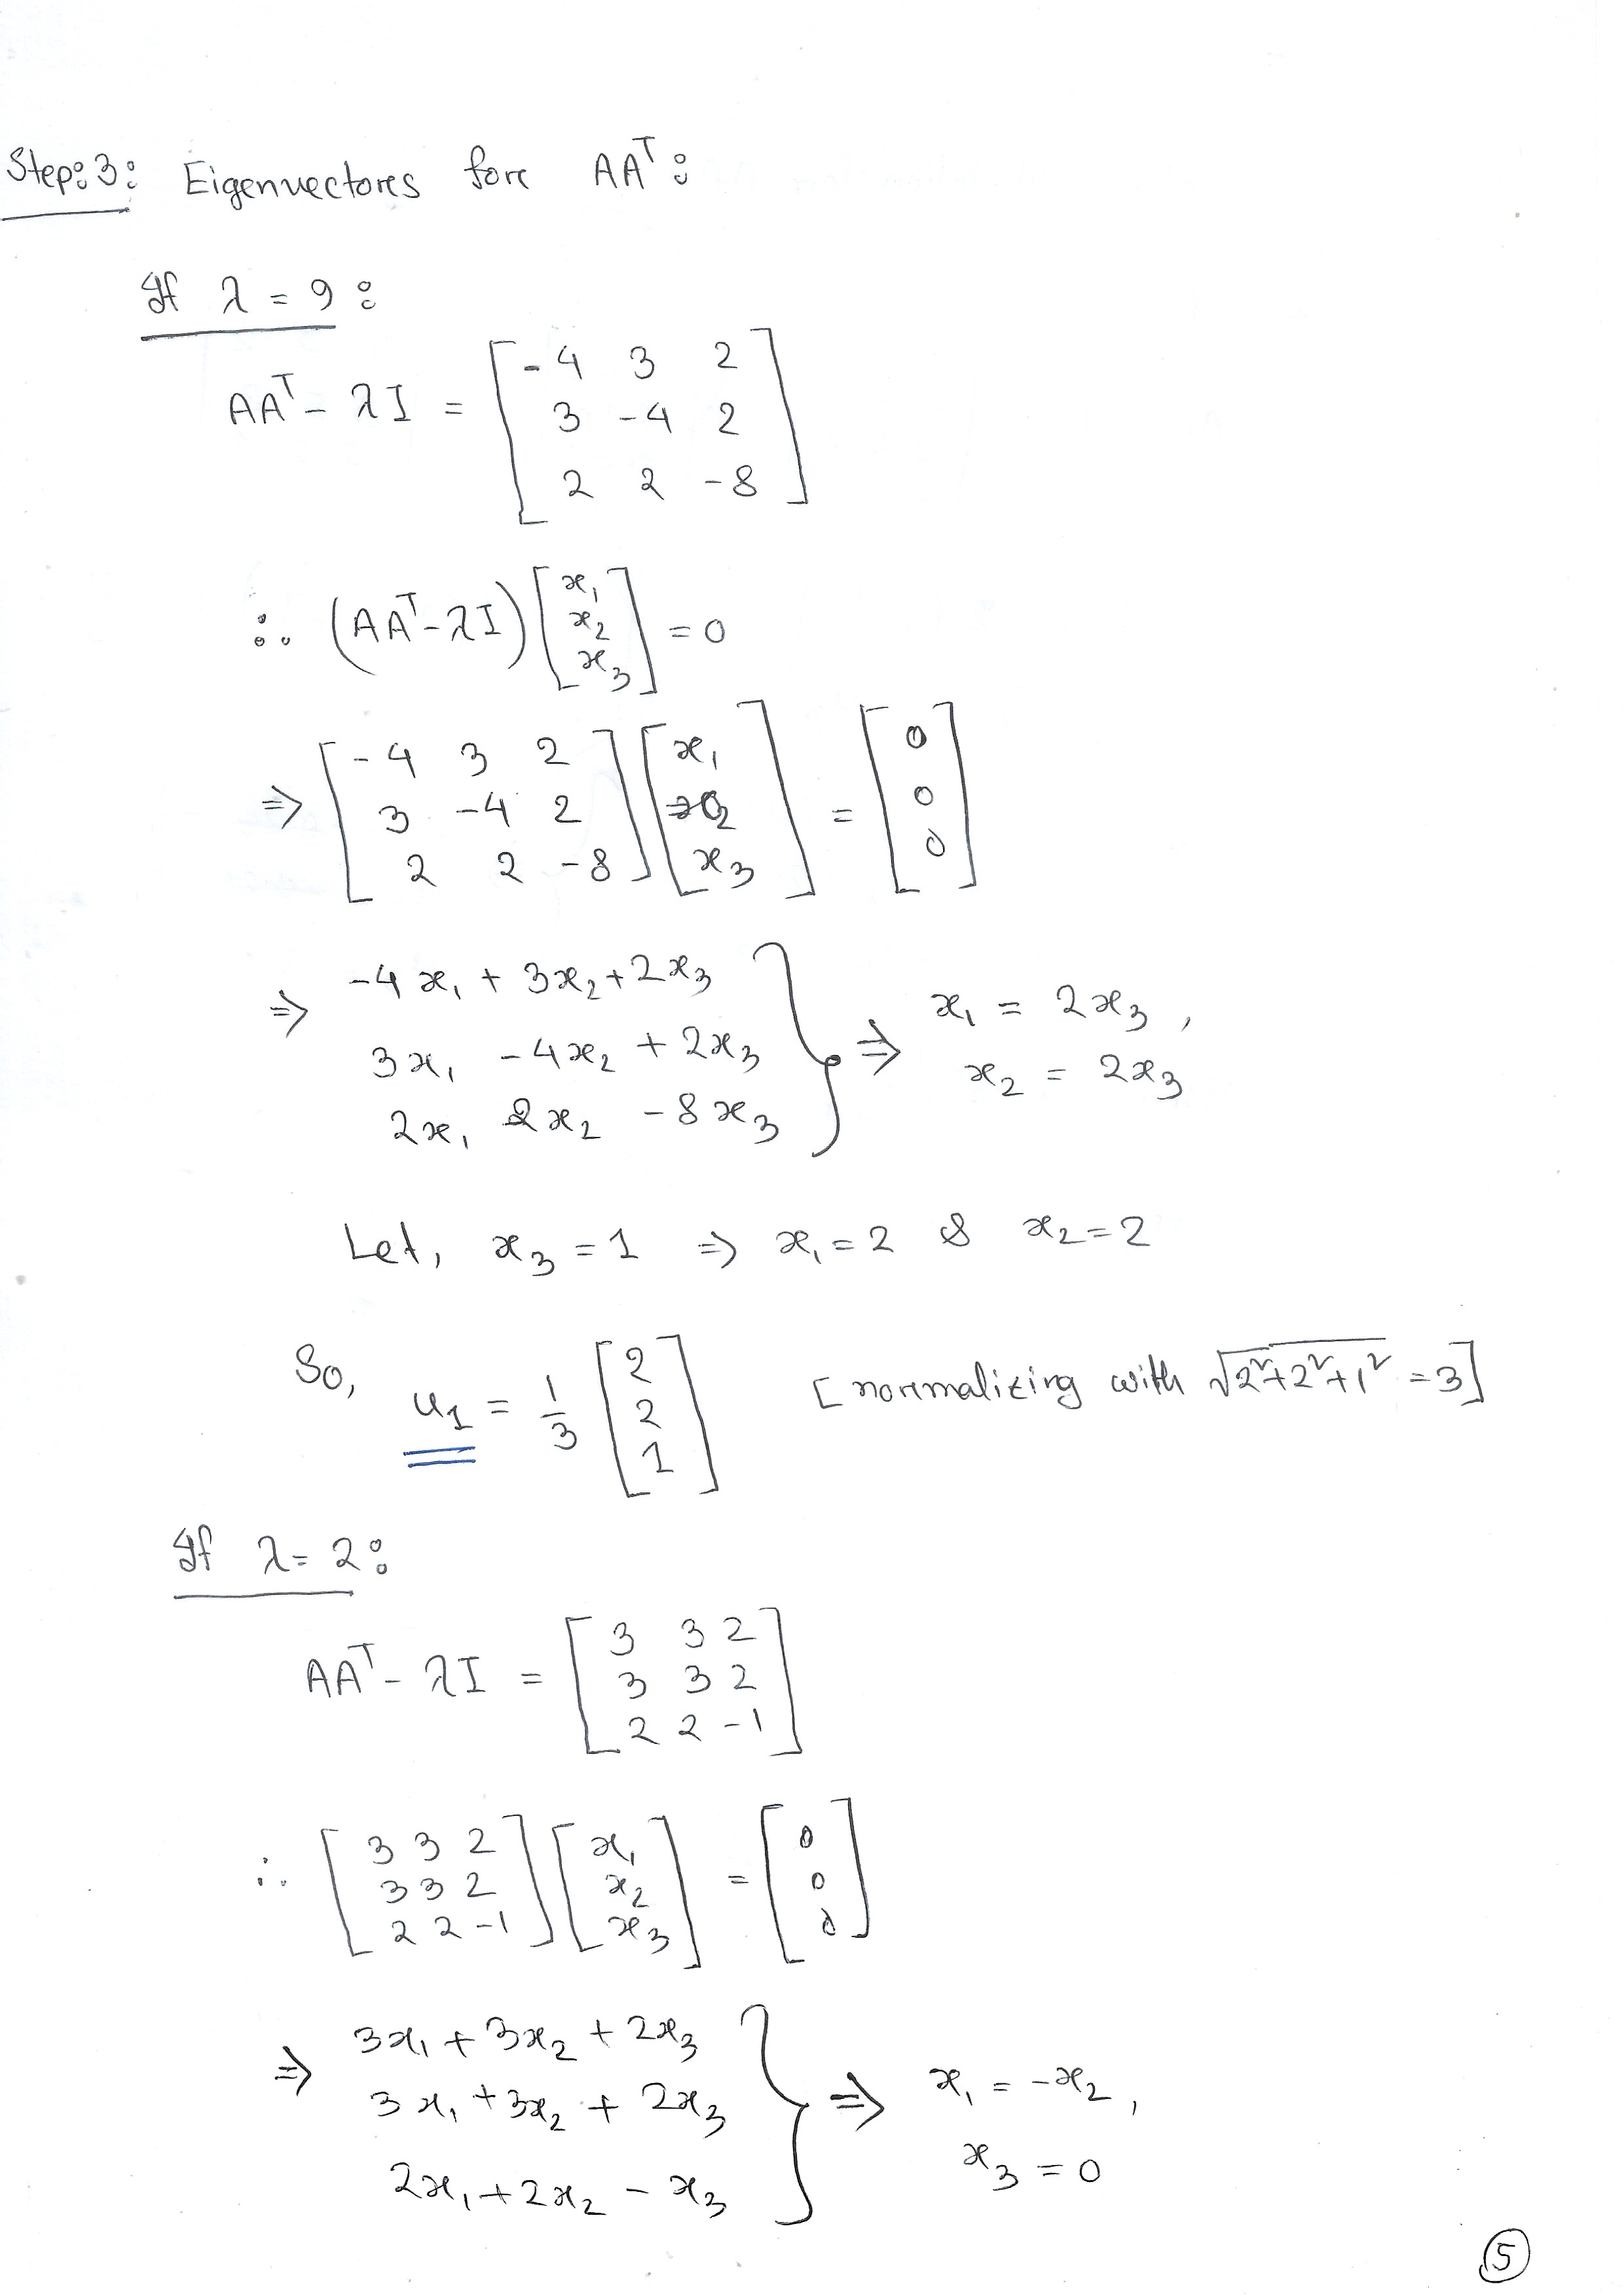 Step: 3: Eigenvectores fore AAᵀ:
If λ = 9 :
AAᵀ - λI = [ -4 3 2
3 -4 2
2 2 -8 ]
∴ (AAᵀ - λI) [ x₁
x₂
x₃ ] = 0
⇒ [ -4 3 2 ] [ x₁ ] = [ 0 ]
[ 3 -4 2 ] [ x₂ ] [ 0 ]
[ 2 2 -8 ] [ x₃ ] [ 0 ]
⇒ -4x₁ + 3x₂ + 2x₃
3x₁ - 4x₂ + 2x₃
2x₁ 2x₂ - 8x₃ } ⇒ x₁ = 2x₃ ,
x₂ = 2x₃
Let, x₃ = 1 ⇒ x₁ = 2 & x₂ = 2
So, u₁ = 1/3 [ 2
2
1 ] [ noremalizing with √2²+2²+1² = 3]
If λ = 2 :
AAᵀ - λI = [ 3 3 2
3 3 2
2 2 -1 ]
∴ [ 3 3 2 ] [ x₁ ] = [ 0 ]
[ 3 3 2 ] [ x₂ ] [ 0 ]
[ 2 2 -1 ] [ x₃ ] [ 0 ]
⇒ 3x₁ + 3x₂ + 2x₃
3x₁ + 3x₂ + 2x₃
2x₁ + 2x₂ - x₃ } ⇒ x₁ = -x₂ ,
x₃ = 0
5